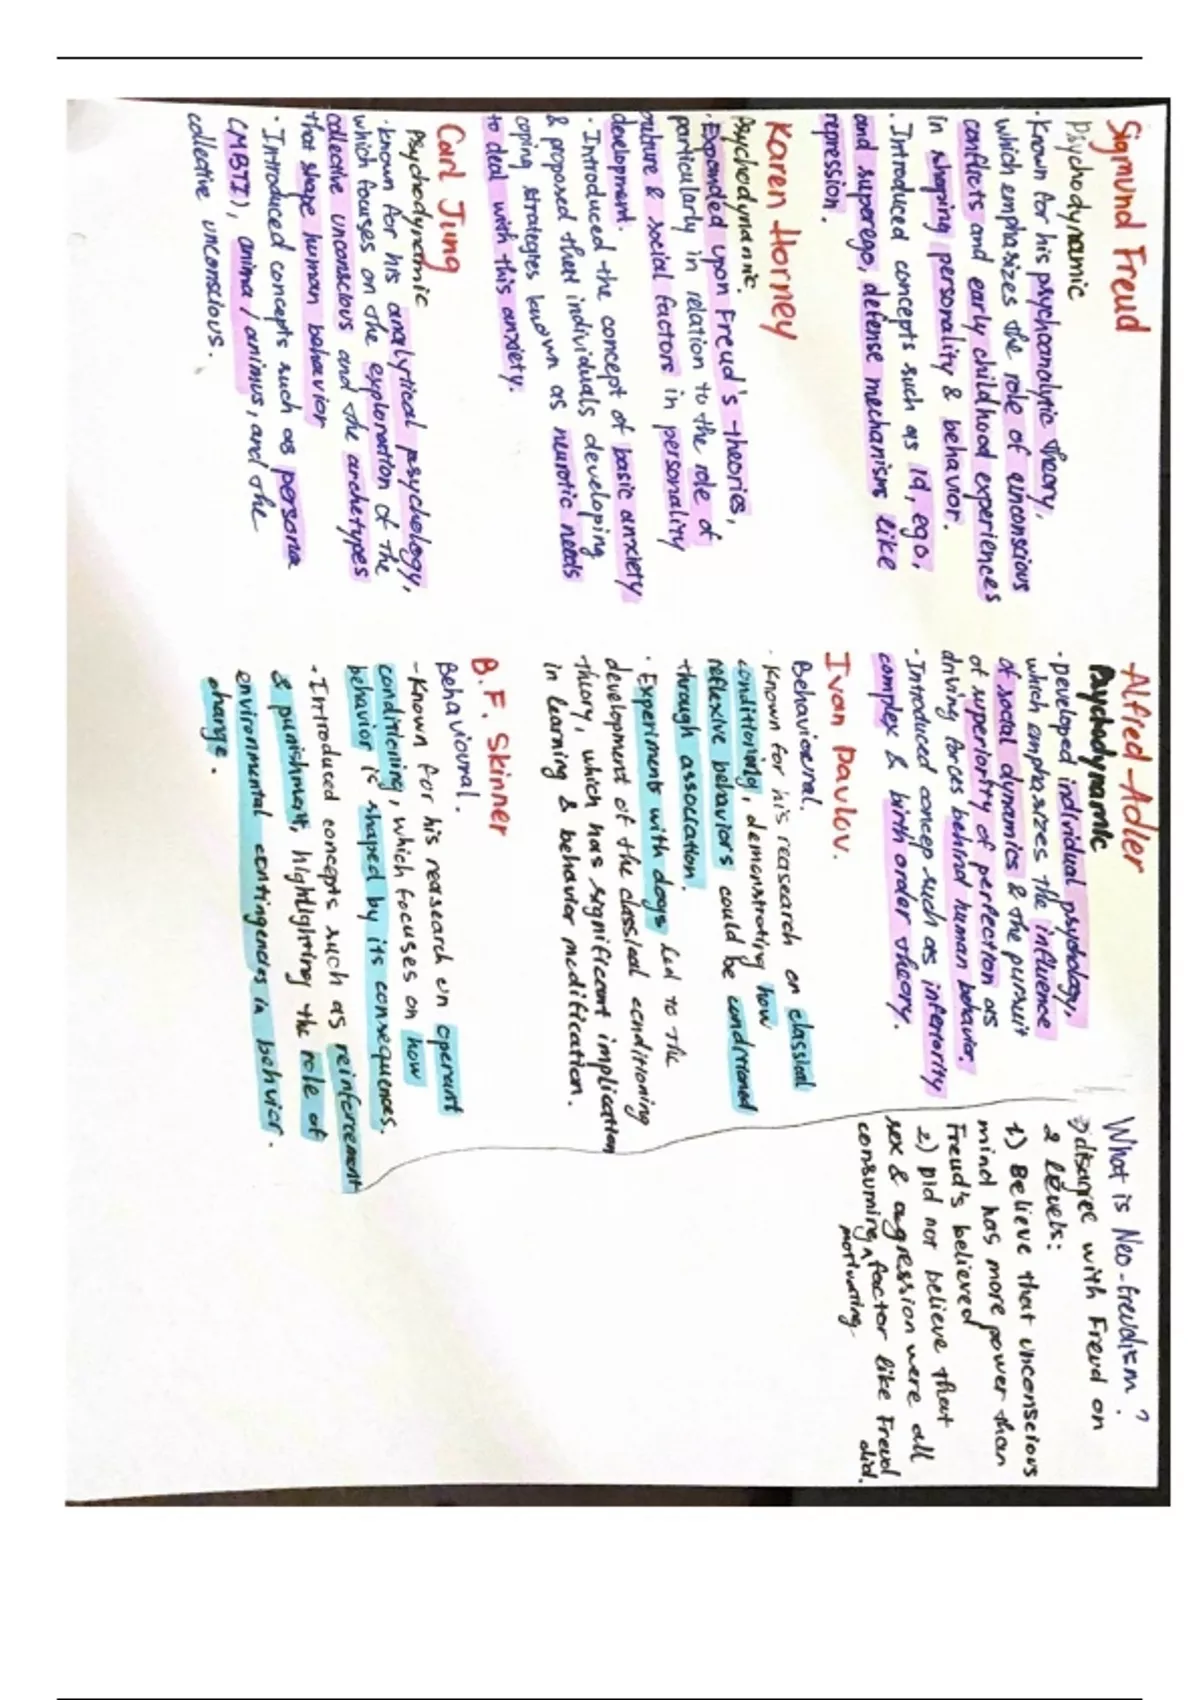 Sigmund Freud
Psychodynamic
· Known for his psychoanalytic theory,
which emphasizes the role of unconscious
conflicts and early childhood experiences
in shaping personality & behavior.
· Introduced concepts such as id, ego,
and superego, defense mechanisms like
repression.
Karen Horney
Psychodynamic.
· Expanded upon Freud's theories,
particularly in relation to the role of
culture & social factors in personality
development.
· Introduced the concept of basic anxiety
& proposed that individuals developing
coping strategies known as neurotic needs
to deal with this anxiety.
Carl Jung
Psychodynamic
· known for his analytical psychology,
which fourses on the exploration of the
collective unconscious and the archetypes
that shape human behavior
· Introduced concepts such as persona
(MBTI), anima / animus, and the
collective unconscious.
Alfred Adler
Psychodynamic
· Developed individual psychology,
which emphasizes the influence
of social dynamics & the pursuit
of superiority of perfection as
driving forces behind human behavior.
· Introduced concep such as infertority
complex & birth order theory.
Ivan Pavlov.
Behavioural.
· Known for his reasearch on classical
conditioning, demonstrating how
reflexive behaviors could be conditioned
through association.
· Experiments with dogs led to the
development of the classical conditioning
theory, which has significant implication
in learning & behavior modification.
B. F. Skinner
Behavioural.
- Known for his reasearch on operant
conditioning, which focuses on how
behavior is shaped by its consequences.
· Introduced concepts such as reinforcement
& punishment, highlighting the role of
environmental contingencies in behavior.
change.
What is Neo-freudism?
disagree with Freud on
2 levels:
1) Believe that unconscious
mind has more power than
Freud's believed
2) Did not believe that
sex & aggression were all
consuming ^ factor like Freud did.
motivating